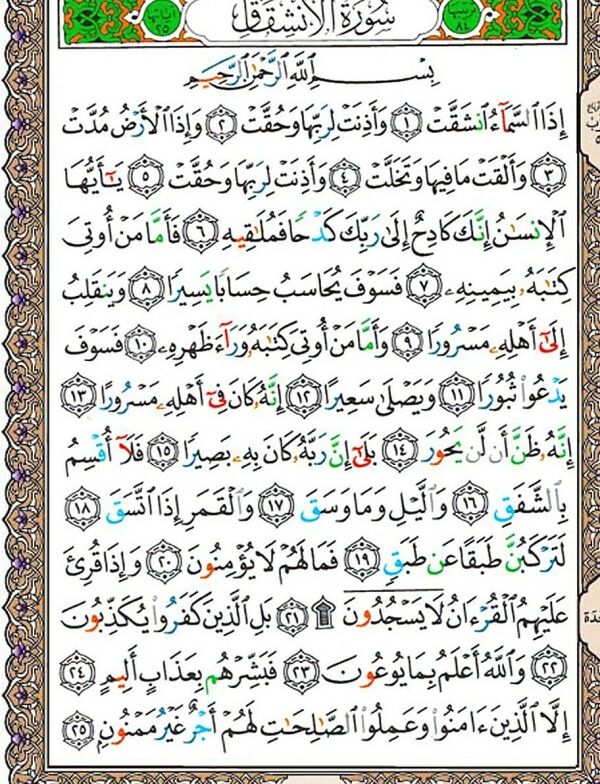 سُورَةُ الْانشِقَاقِ
بِسْمِ اللَّهِ الرَّحْمَٰنِ الرَّحِيمِ
إِذَا السَّمَآءُ انشَقَّتْ ١ وَأَذِنَتْ لِرَبِّهَا وَحُقَّتْ ٢ وَإِذَا الْأَرْضُ مُدَّتْ
٣ وَأَلْقَتْ مَا فِيهَا وَتَخَلَّتْ ٤ وَأَذِنَتْ لِرَبِّهَا وَحُقَّتْ ٥ يَٰٓأَيُّهَا
الْإِنسَٰنُ إِنَّكَ كَادِحٌ إِلَىٰ رَبِّكَ كَدْحًا فَمُلَٰقِيهِ ٦ فَأَمَّا مَنْ أُوتِيَ
كِتَٰبَهُۥ بِيَمِينِهِۦ ٧ فَسَوْفَ يُحَاسَبُ حِسَابًا يَسِيرًا ٨ وَيَنقَلِبُ
إِلَىٰٓ أَهْلِهِۦ مَسْرُورًا ٩ وَأَمَّا مَنْ أُوتِيَ كِتَٰبَهُۥ وَرَآءَ ظَهْرِهِۦ ١٠ فَسَوْفَ
يَدْعُوا۟ ثُبُورًا ١١ وَيَصْلَىٰ سَعِيرًا ١٢ إِنَّهُۥ كَانَ فِىٓ أَهْلِهِۦ مَسْرُورًا ١٣
إِنَّهُۥ ظَنَّ أَن لَّن يَحُورَ ١٤ بَلَىٰٓ إِنَّ رَبَّهُۥ كَانَ بِهِۦ بَصِيرًا ١٥ فَلَآ أُقْسِمُ
بِالشَّفَقِ ١٦ وَالَّيْلِ وَمَا وَسَقَ ١٧ وَالْقَمَرِ إِذَا اتَّسَقَ ١٨
لَتَرْكَبُنَّ طَبَقًا عَن طَبَقٍ ١٩ فَمَا لَهُمْ لَا يُؤْمِنُونَ ٢٠ وَإِذَا قُرِئَ
عَلَيْهِمُ الْقُرْءَانُ لَا يَسْجُدُونَ ۩ ٢١ بَلِ الَّذِينَ كَفَرُوا۟ يُكَذِّبُونَ
٢٢ وَاللَّهُ أَعْلَمُ بِمَا يُوعُونَ ٢٣ فَبَشِّرْهُم بِعَذَابٍ أَلِيمٍ ٢٤
إِلَّا الَّذِينَ ءَامَنُوا۟ وَعَمِلُوا۟ الصَّٰلِحَٰتِ لَهُمْ أَجْرٌ غَيْرُ مَمْنُونٍ ٢٥